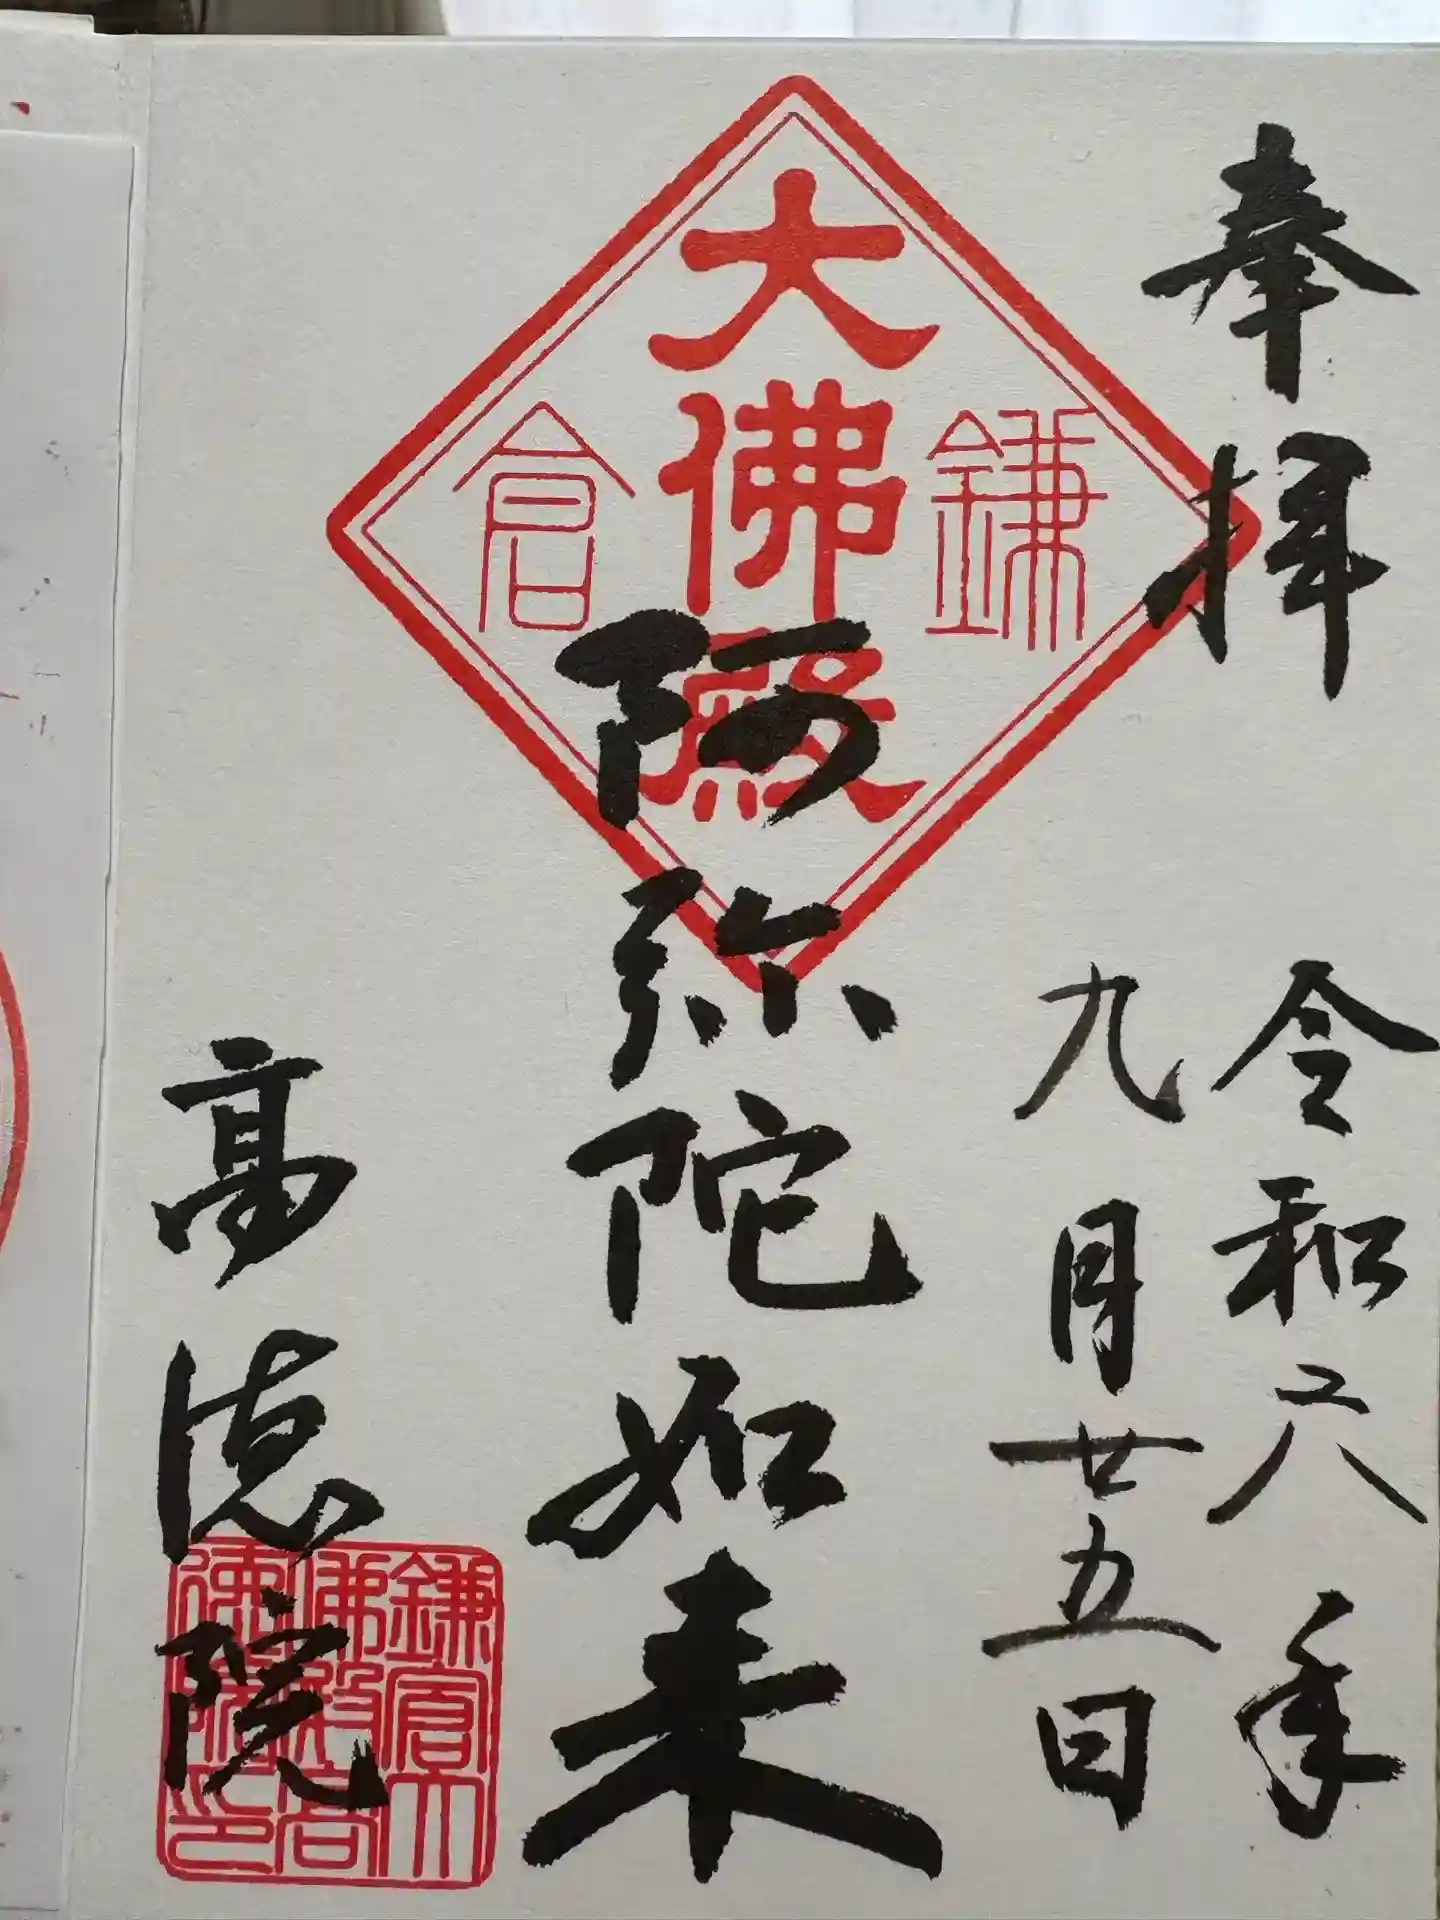 奉拝
令和六年
九月廿五日
鎌倉
大佛殿
阿弥陀如来
高徳院
鎌倉大
佛殿高
徳院印